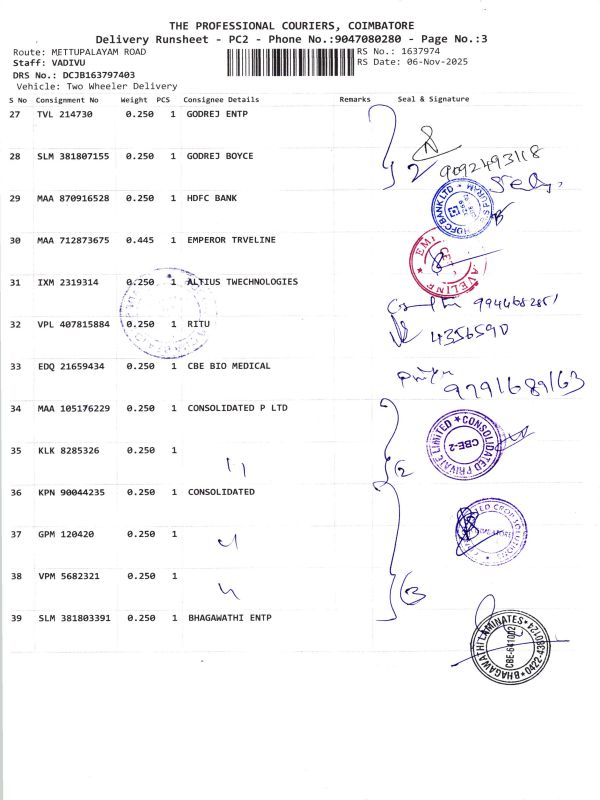 THE PROFESSIONAL COURIERS, COIMBATORE
Delivery Runsheet - PC2 - Phone No.:9047080280 - Page No.:3
Route: METTUPALAYAM ROAD RS No.: 1637974
Staff: VADIVU RS Date: 06-Nov-2025
DRS No.: DCJB163797403
Vehicle: Two Wheeler Delivery
S No Consignment No Weight PCS Consignee Details Remarks Seal & Signature
27 TVL 214730 0.250 1 GODREJ ENTP
28 SLM 381807155 0.250 1 GODREJ BOYCE
2 9092493118
29 MAA 870916528 0.250 1 HDFC BANK
HDFC BANK LTD
30 MAA 712873675 0.445 1 EMPEROR TRVELINE
31 IXM 2319314 0.250 1 ALTIUS TWECHNOLOGIES
32 VPL 407815884 0.250 1 RITU
4356590
33 EDQ 21659434 0.250 1 CBE BIO MEDICAL
9791689163
34 MAA 105176229 0.250 1 CONSOLIDATED P LTD
CONSOLIDATED PRIVATE LIMITED
CBE-2
35 KLK 8285326 0.250 1
2
36 KPN 90044235 0.250 1 CONSOLIDATED
37 GPM 120420 0.250 1
38 VPM 5682321 0.250 1
3
39 SLM 381803391 0.250 1 BHAGAWATHI ENTP
BHAGAWATHI LAMINATES